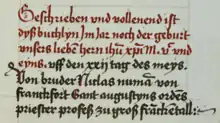 Geschrieben vnd vollenend ist
dyß buchlyn Im Jar noch der geburt
vnsers liebē hern ihū xp̄i M. vͨ vnd
eyns. vff den xxij tag des meys.
Von bruder Niclas numā. von
franckfort Sant augustyns ordēs
priester profeß zu groß frāckētall: